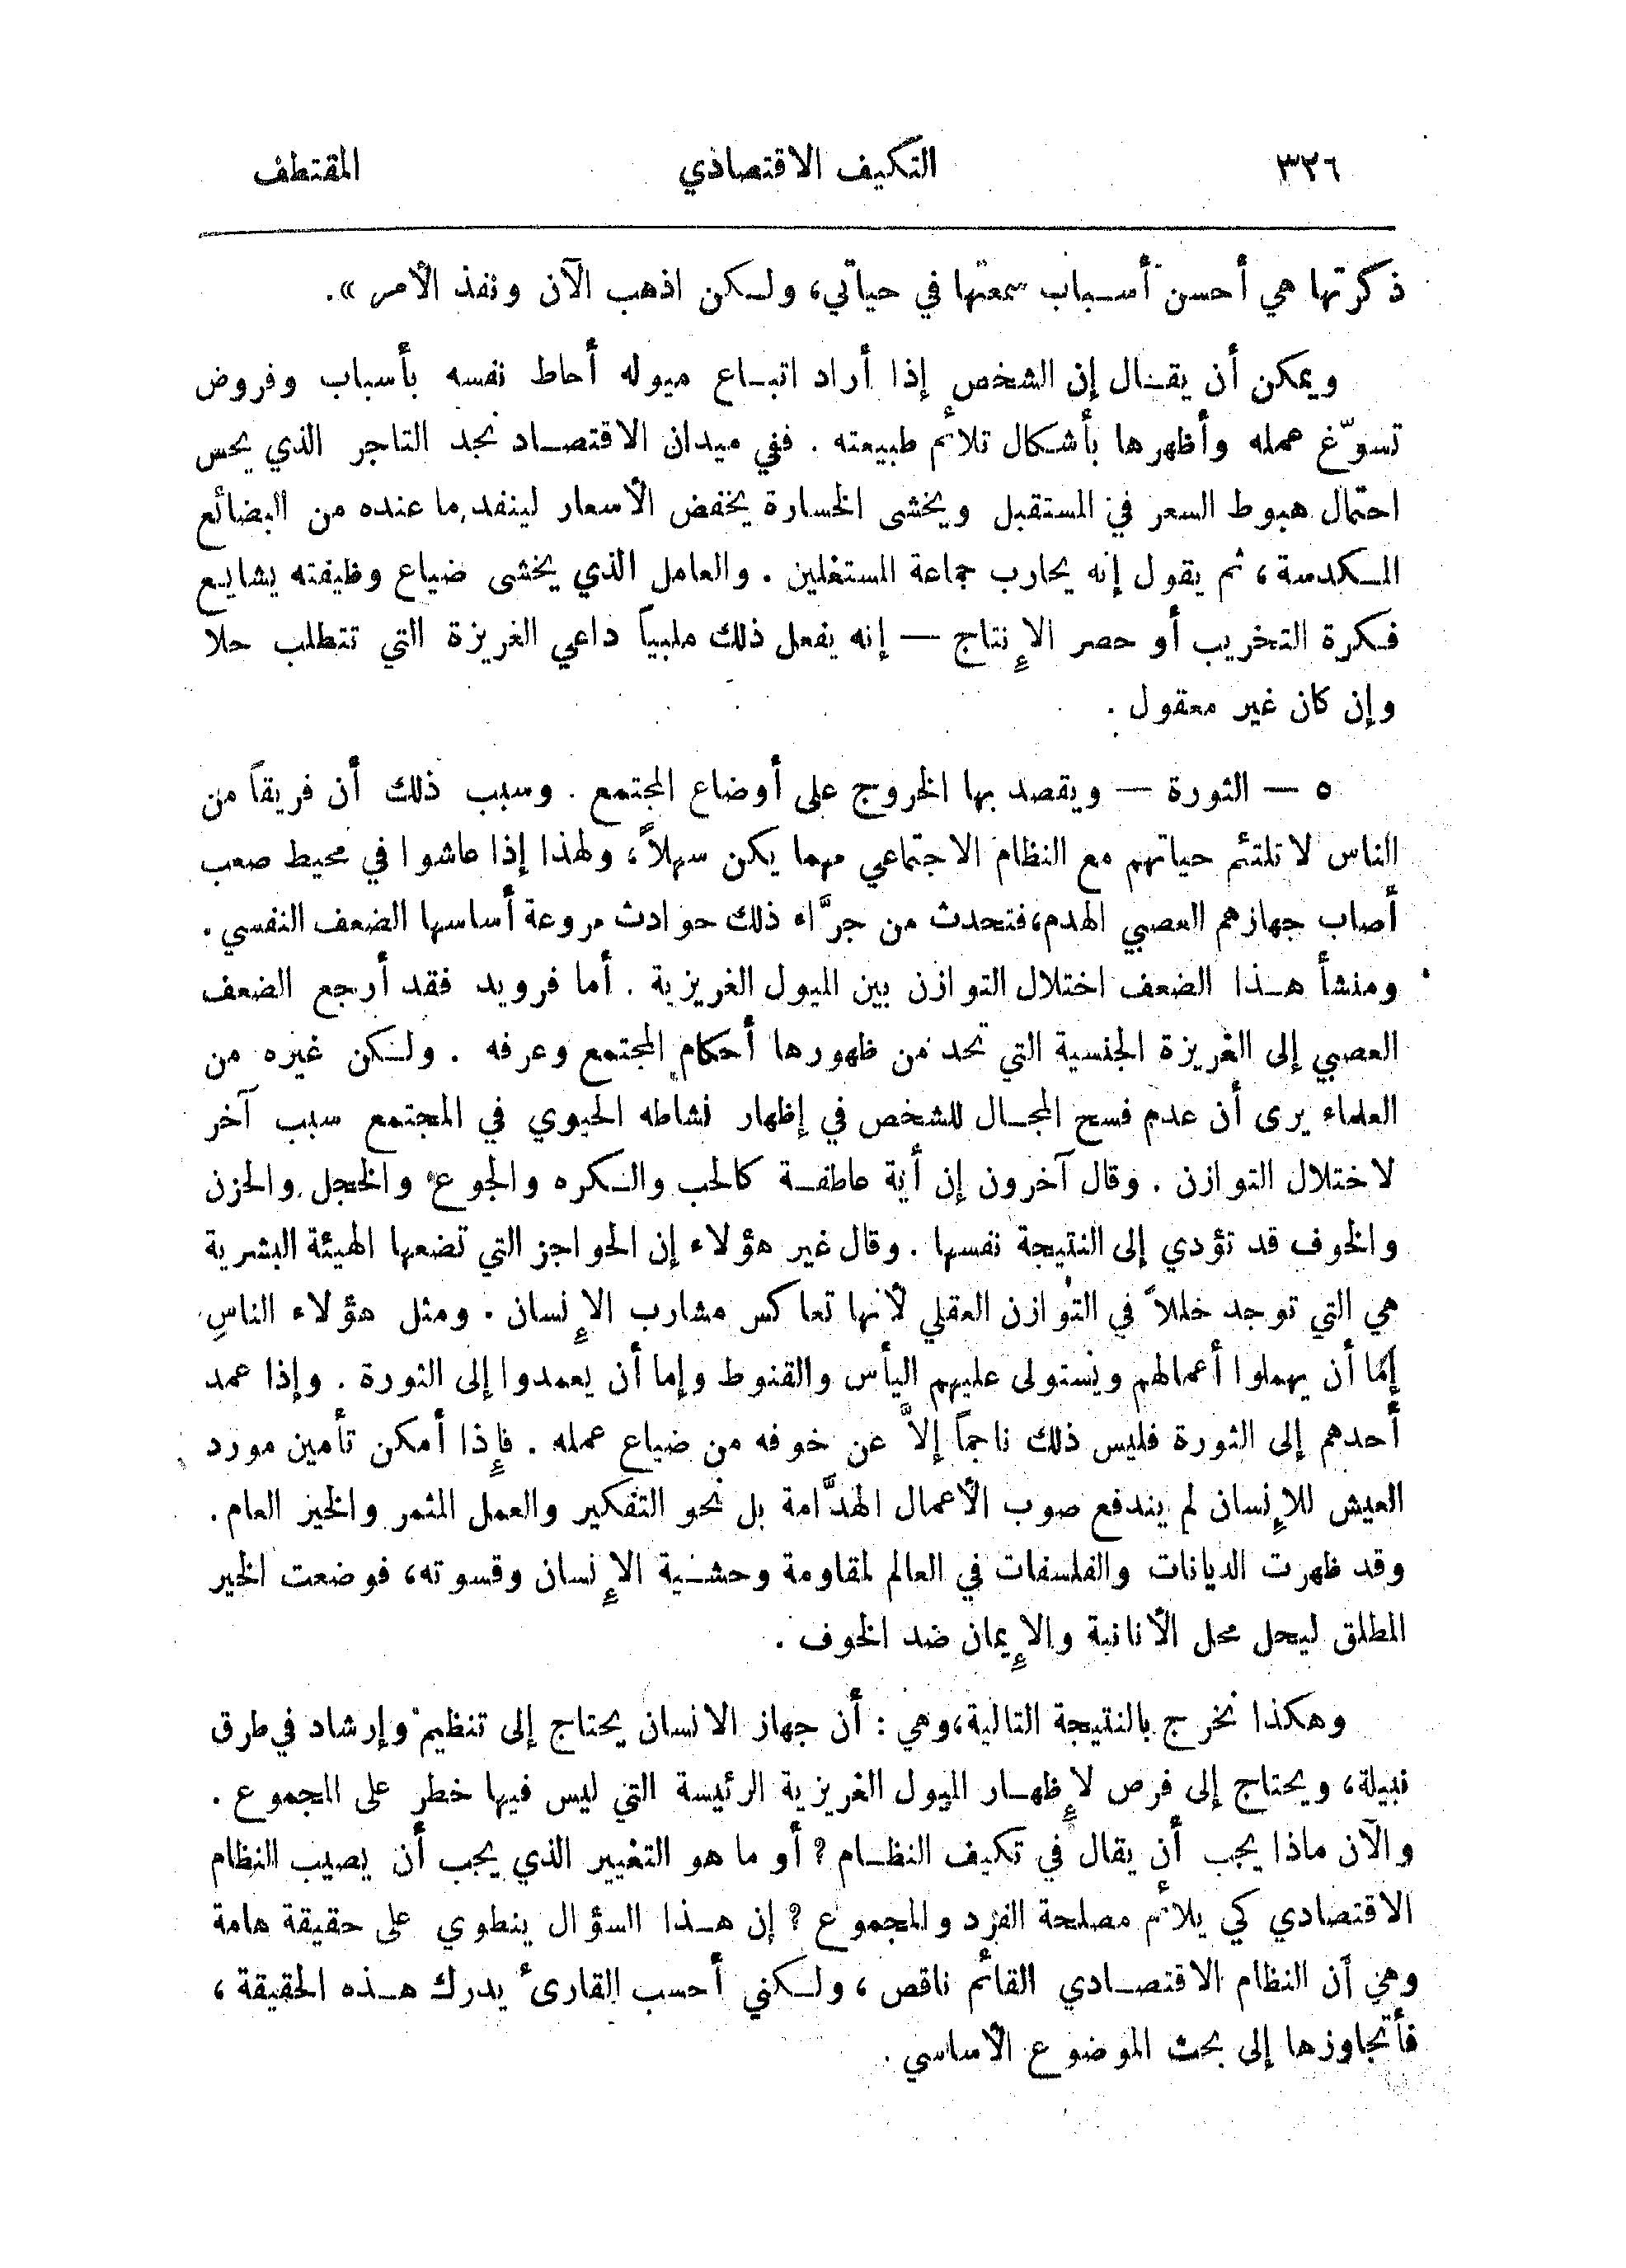 ٣٢٦ التكيف الاقتصادي المقتطف
ذكرتها هي أحسن أسباب سمعتها في حياتي، ولكن اذهب الآن ونفذ الأمر».
ويمكن أن يقال إن الشخص إذا أراد اتباع ميوله أحاط نفسه بأسباب وفروض
تسوّغ عمله وأظهرها بأشكال تلائم طبيعته . ففي ميدان الاقتصاد نجد التاجر الذي يحس
احتمال هبوط السعر في المستقبل ويخشى الخسارة يخفض الأسعار لينفد ما عنده من البضائع
المكدسة، ثم يقول إنه يحارب جماعة المستغلين . والعامل الذي يخشى ضياع وظيفته يشايع
فكرة التخريب أو حصر الإنتاج — إنه يفعل ذلك ملبياً داعي الغريزة التي تتطلب حلا
وإن كان غير معقول .
٥ — الثورة — ويقصد بها الخروج على أوضاع المجتمع . وسبب ذلك أن فريقاً من
الناس لا تلتئم حياتهم مع النظام الاجتماعي مهما يكن سهلاً، ولهذا إذا عاشوا في محيط صعب
أصاب جهازهم العصبي الهدم، فتحدث من جرَّاء ذلك حوادث مروعة أساسها الضعف النفسي .
ومنشأ هذا الضعف اختلال التوازن بين الميول الغريزية . أما فرويد فقد أرجع الضعف
العصبي إلى الغريزة الجنسية التي تحد من ظهورها أحكام المجتمع وعرفه . ولكن غيره من
العلماء يرى أن عدم فسح المجال للشخص في إظهار نشاطه الحيوي في المجتمع سبب آخر
لاختلال التوازن . وقال آخرون إن أية عاطفة كالحب والكره والجوع والخجل والحزن
والخوف قد تؤدي إلى النتيجة نفسها . وقال غير هؤلاء إن الحواجز التي تضعها الهيئة البشرية
هي التي توجد خللاً في التوازن العقلي لأنها تعاكس مشارب الإنسان . ومثل هؤلاء الناس
إمّا أن يهملوا أعمالهم ويستولى عليهم اليأس والقنوط وإما أن يعمدوا إلى الثورة . وإذا عمد
أحدهم إلى الثورة فليس ذلك ناجماً إلاَّ عن خوفه من ضياع عمله . فإذا أمكن تأمين مورد
العيش للإنسان لم يندفع صوب الأعمال الهدَّامة بل نحو التفكير والعمل المثمر والخير العام .
وقد ظهرت الديانات والفلسفات في العالم لمقاومة وحشية الإنسان وقسوته، فوضعت الخير
المطلق ليحل محل الأنانية والإيمان ضد الخوف .
وهكذا نخرج بالنتيجة التالية، وهي : أن جهاز الانسان يحتاج إلى تنظيم وإرشاد في طرق
نبيلة، ويحتاج إلى فرص لإظهار الميول الغريزية الرئيسة التي ليس فيها خطر على المجموع .
والآن ماذا يجب أن يقال في تكيف النظام ؟ أو ما هو التغيير الذي يجب أن يصيب النظام
الاقتصادي كي يلائم مصلحة الفرد والمجموع ؟ إن هذا السؤال ينطوي على حقيقة هامة
وهي أن النظام الاقتصادي القائم ناقص ، ولكني أحسب القارئ يدرك هذه الحقيقة ،
فأتجاوزها إلى بحث الموضوع الأساسي .